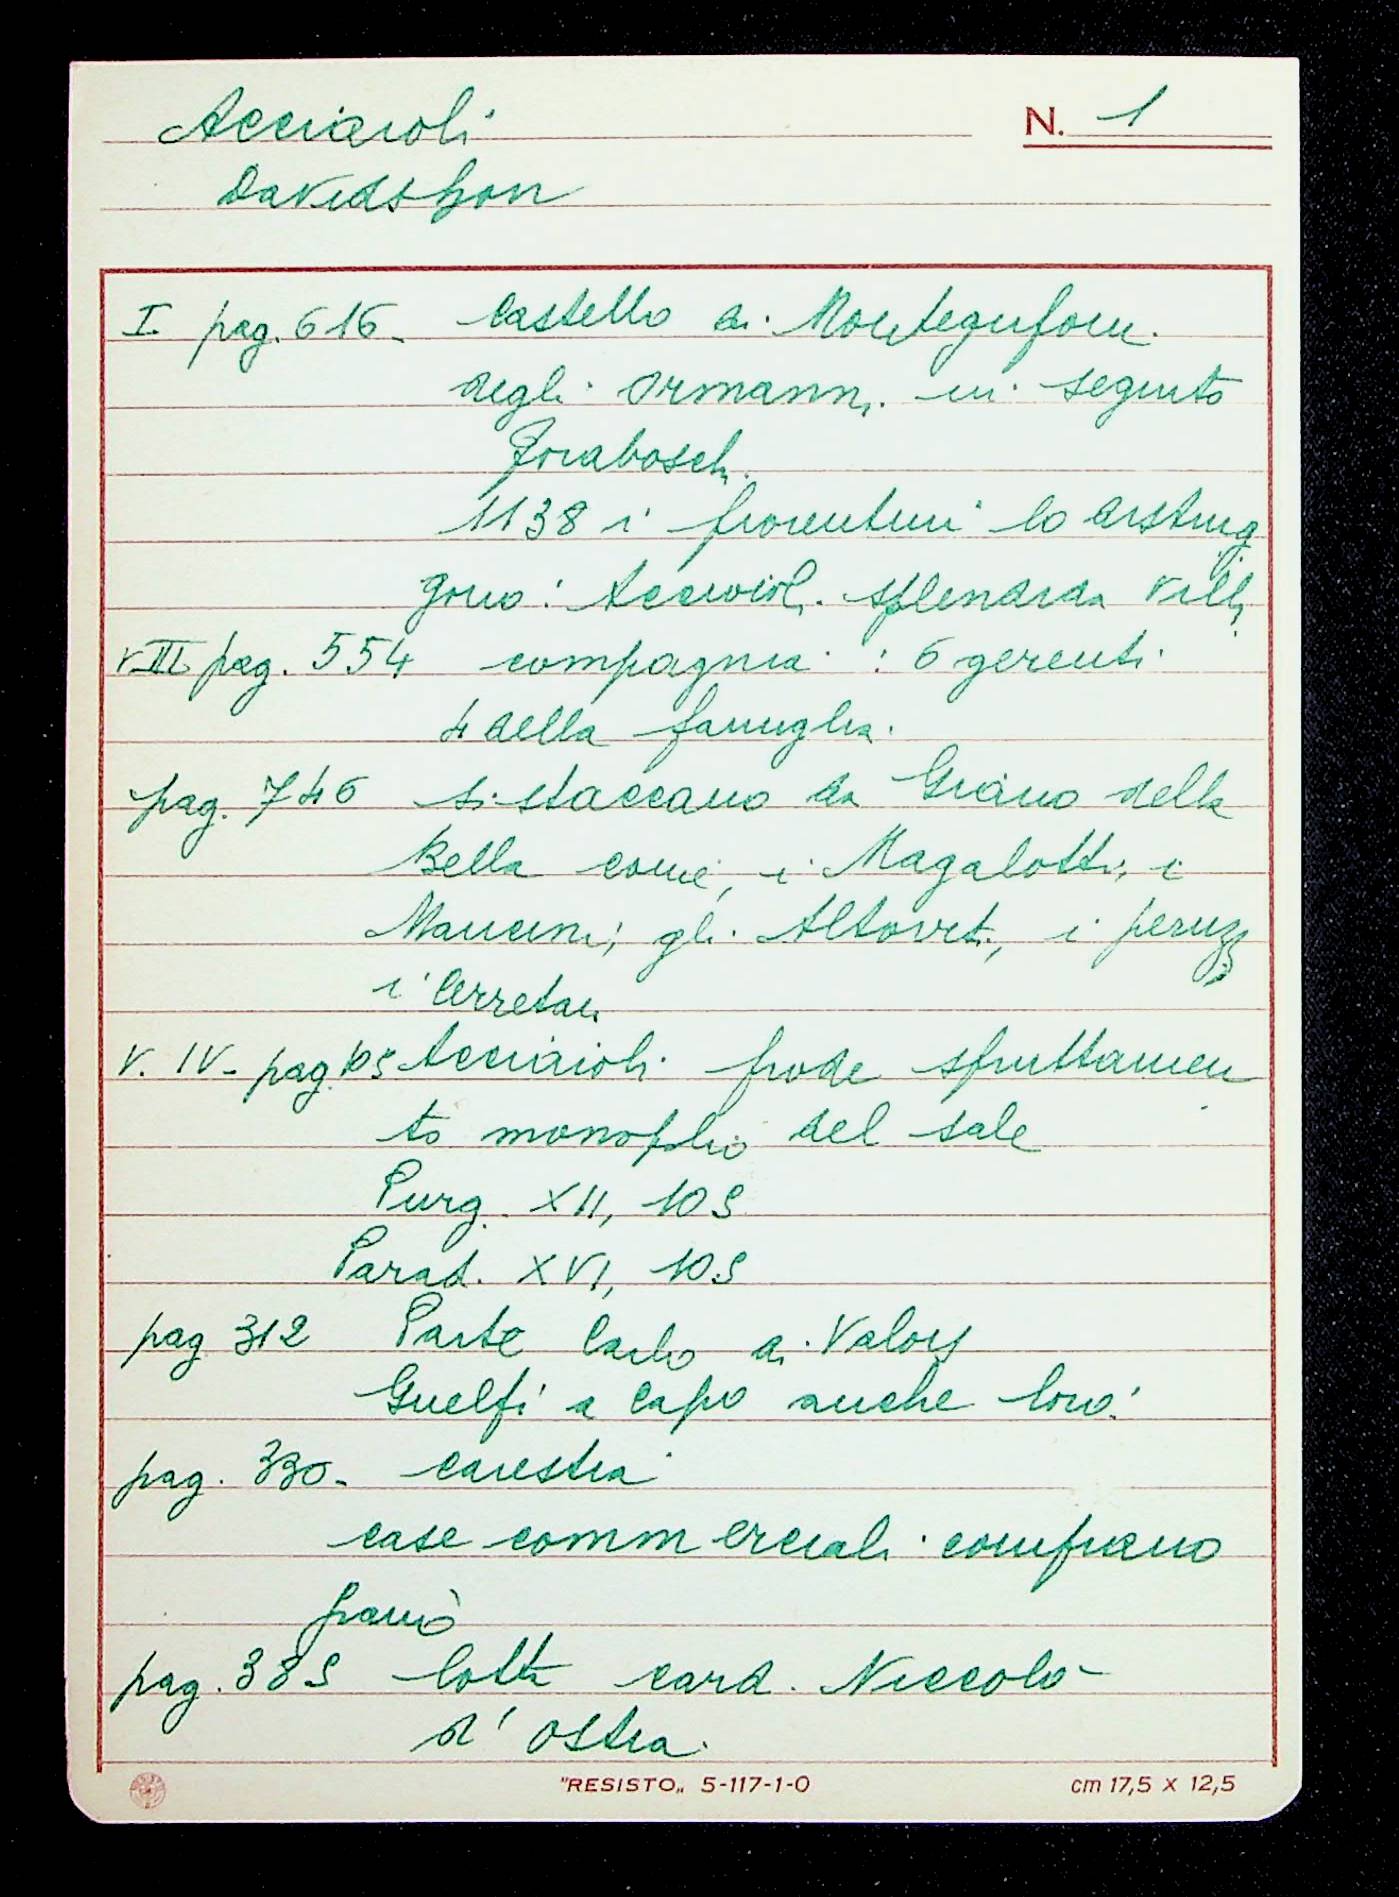 Acciaioli
N. 1
Davidshon
I. pag. 616- Castello di Montegufoni
degli Ormanni in seguito
Foraboschi
1138 i fiorentini lo distrug
gono: Acciaioli splendida villa
V.III pag. 554 compagnia: 6 gerenti
4 della famiglia.
pag. 746 si staccano da Giano della
Bella come, i Magalotti, i
Mancini, gli Altoviti, i peruzzi
i Cerretani
V. IV- pag. 109 Acciaioli frode sfruttamen
to monopolio del sale
Purg. XII, 109
Parad. XVI, 109
pag 312 Parte Carlo di Valois
Guelfi a capo anche loro.
pag. 330- carestia
case commerciali comprano
pag. 389 lotta card. Niccolò
d' Ostia.
"RESISTO„ 5-117-1-0
cm 17,5 x 12,5